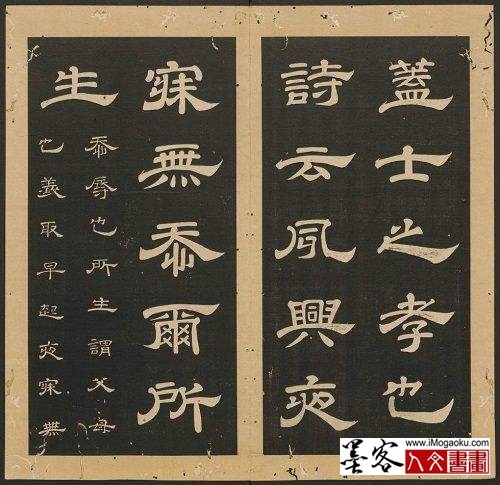 蓋士之孝也
詩云夙興夜
寐無忝爾所
生
忝辱也所生謂父母
也義取早起夜寐無
墨客
www.iMogaoku.com
人文書畫